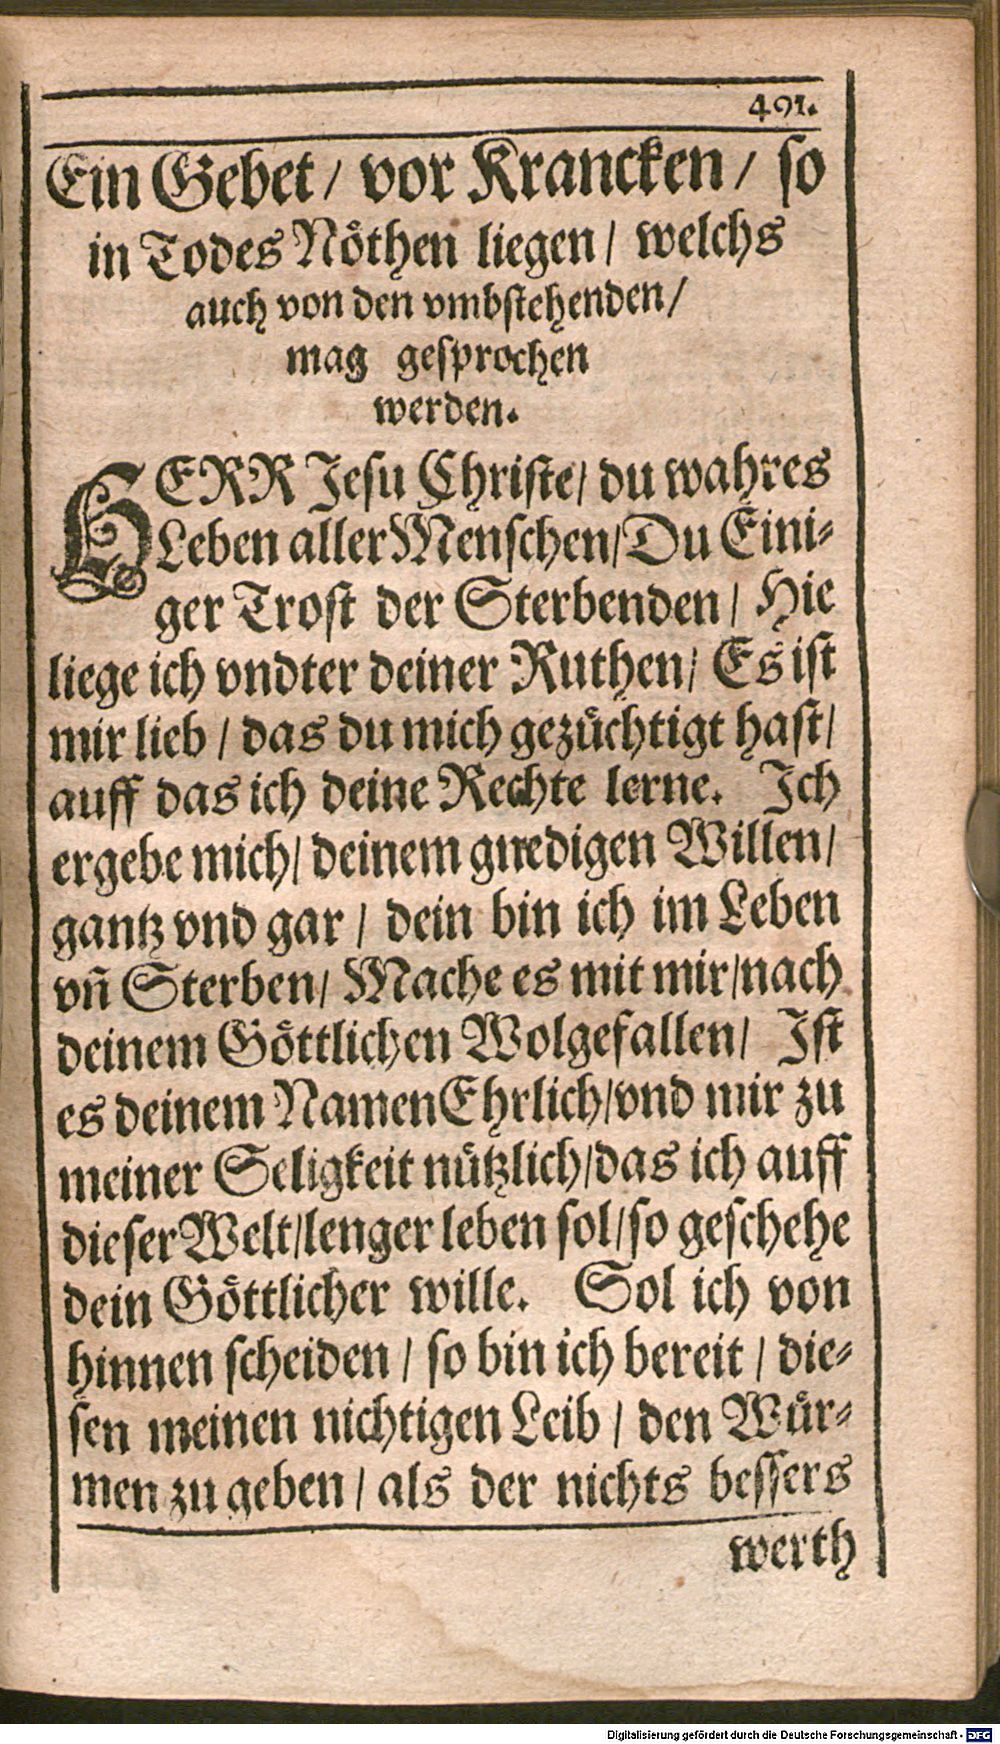 491.
Ein Gebet / vor Krancken / so
in Todes Nöthen liegen / welchs
auch von den vmbstehenden /
mag gesprochen
werden.
HERR Jesu Christe / du wahres
Leben aller Menschen / Du Eini-
ger Trost der Sterbenden / Hie
liege ich vndter deiner Ruthen / Es ist
mir lieb / das du mich gezüchtigt hast /
auff das ich deine Rechte lerne. Ich
ergebe mich / deinem gnedigen Willen /
gantz vnd gar / dein bin ich im Leben
vñ Sterben / Mache es mit mir / nach
deinem Göttlichen Wolgefallen / Ist
es deinem Namen Ehrlich / vnd mir zu
meiner Seligkeit nützlich / das ich auff
dieser Welt / lenger leben sol / so geschehe
dein Göttlicher wille. Sol ich von
hinnen scheiden / so bin ich bereit / die-
sen meinen nichtigen Leib / den Wür-
men zu geben / als der nichts bessers
werth
Digitalisierung gefördert durch die Deutsche Forschungsgemeinschaft - DFG